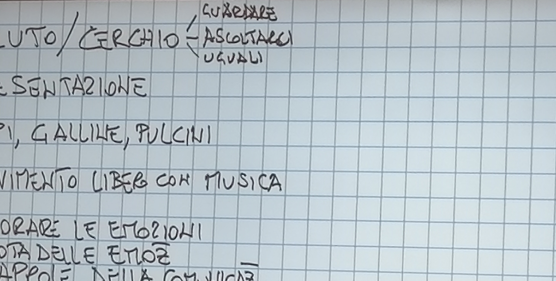 GUARDARE
LUTO/CERCHIO - ASCOLTARCI
UGUALI
ESENTAZIONE
PI, GALLINE, PULCINI
VIMENTO LIBERO CON MUSICA
ORARE LE EMOZIONI
OTA DELLE EMOZ
APPOLE DELLA COMUNICAZ